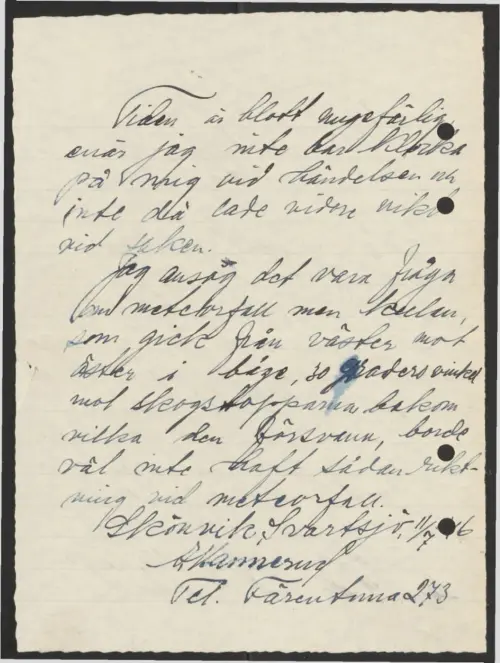 Tiden är blott ungefärlig,
enär jag inte bar klocka
på mig vid händelsen och
inte då lade vidare vikt
vid saken.
Jag ansåg det vara fråga
om meteorfall men kulan,
som gick från väster mot
öster i båge, 30 graders vinkel
mot skogstopparna bakom
vilka den försvann, borde
väl inte haft sådan rikt-
ning vid meteorfall.
Skönvik, Svartsjö, 11/7 46
Tel. Färentuna 273